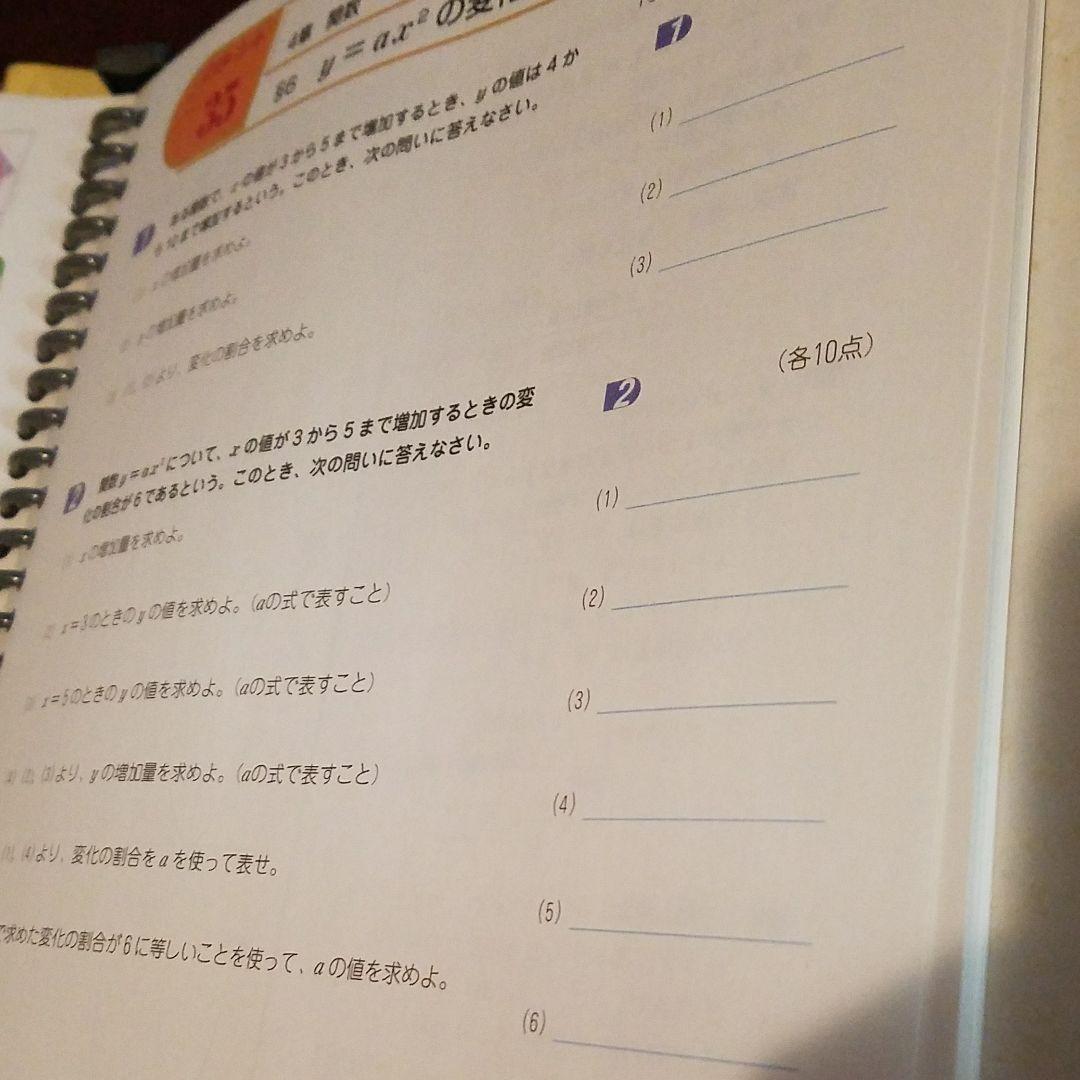 35
4章 関数
§6 y=ax²の変化
1 ある関数で、xの値が3から5まで増加するとき、yの値は4か
ら10まで増加するという。このとき、次の問いに答えなさい。
の増加量を求めよ。
の増加量を求めよ。
より、変化の割合を求めよ。
2 関数y=ax²について、xの値が3から5まで増加するときの変
化の割合が6であるという。このとき、次の問いに答えなさい。
xの増加量を求めよ。
x=3のときのyの値を求めよ。(aの式で表すこと)
x=5のときのyの値を求めよ。(aの式で表すこと)
(2), (3)より、yの増加量を求めよ。(aの式で表すこと)
(4)より、変化の割合をaを使って表せ。
で求めた変化の割合が6に等しいことを使って、aの値を求めよ。
1
(1)
(2)
(3)
(各10点)
2
(1)
(2)
(3)
(4)
(5)
(6)